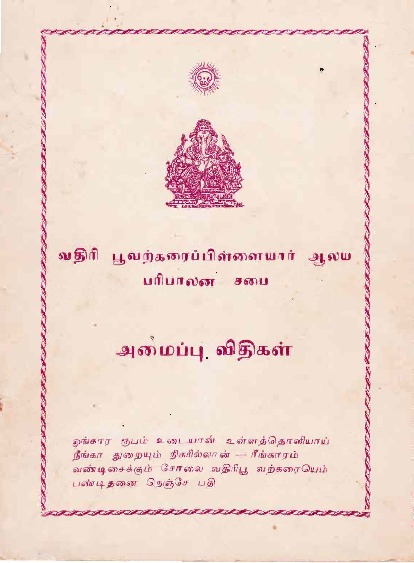 வதிரி பூவற்கரைப்பிள்ளையார் ஆலய
பரிபாலன சபை
அமைப்பு விதிகள்
ஓங்கார ரூபம் உடையான் உள்ளத்தொளியாய்
நீங்கா துறையும் நிகரில்லான் — ரீங்காரம்
வண்டிசைக்கும் சோலை வதிரிபூ வற்கரையெம்
பண்டிதனை நெஞ்சே பதி